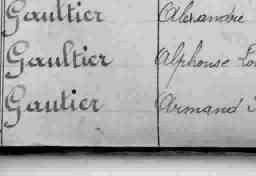 Gaultier Alexandre
Gaultier Alphonse
Gautier Armand